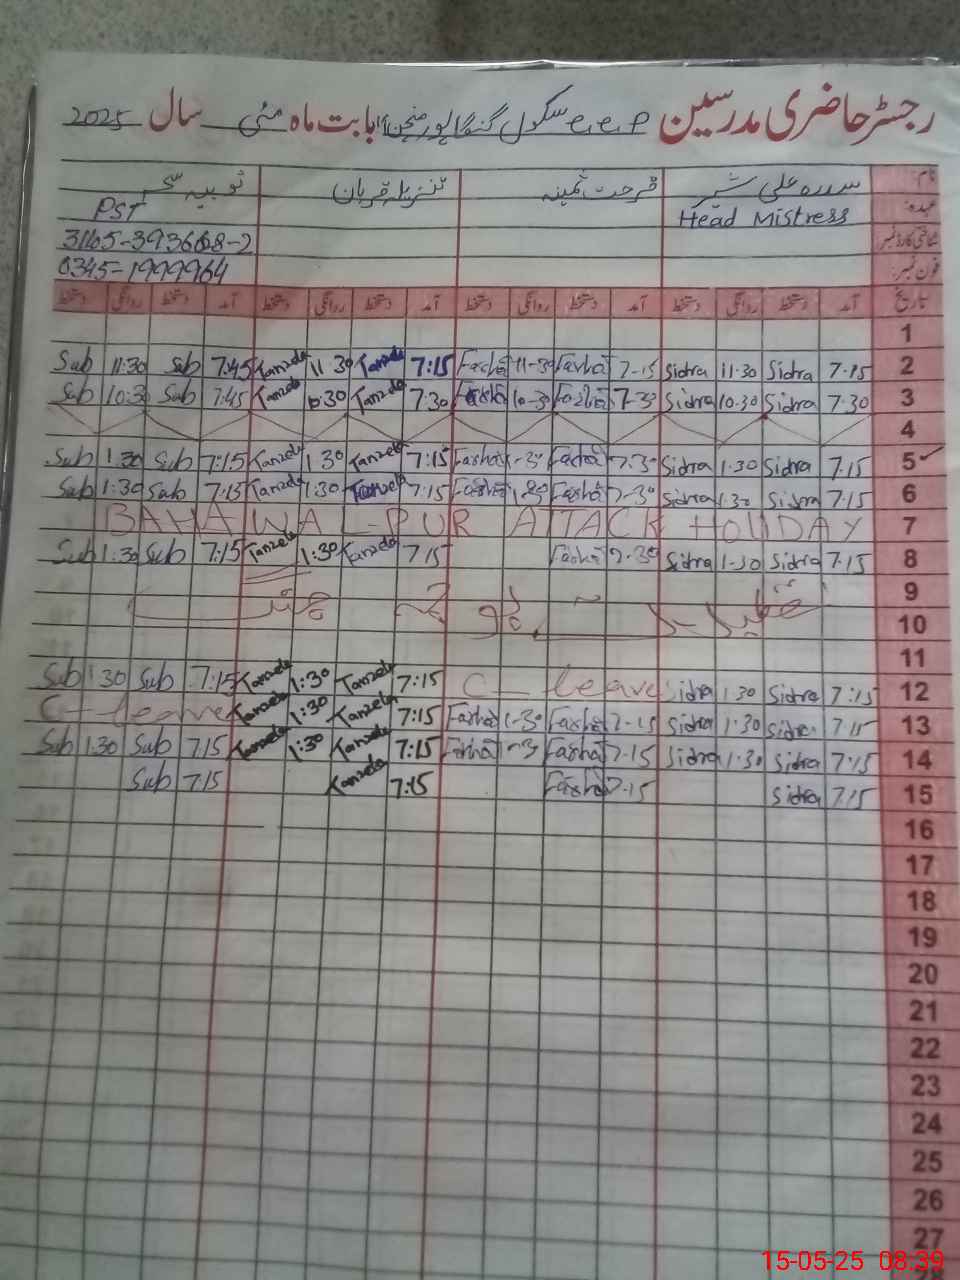 رجسٹر حاضری مدرسین P.e.e سکول گنگاپور بابت ماہ مئی سال 2025
نام: سدرہ علی شیر فرحت ثمینہ تنزیلہ قربان ثوبیہ سحر
عہدہ: Head Mistress PST
شناختی کارڈ نمبر
فون نمبر: 0345-1999964
تاریخ آمد دستخط روانگی دستخط آمد دستخط روانگی دستخط آمد دستخط روانگی دستخط آمد دستخط روانگی دستخط
1
Sub 11:30 Sub 7:45 Tanzela 11 30 Tanzela 7:15 Farha 11-30 Farha 7-15 Sidra 11.30 Sidra 7.15 2
Sub 10:30 Sub 7:45 Tanzela 10 30 Tanzela 7:30 Farha 10-30 Farha 7-30 Sidra 10.30 Sidra 7.30 3
4
Sub 1:30 Sub 7:15 Tanzela 1 30 Tanzela 7:15 Farha 1-30 Farha 7-30 Sidra 1.30 Sidra 7.15 5
Sub 1:30 Sub 7:15 Tanzela 1:30 Tanzela 7:15 Farha Farha 7-30 Sidra 1.30 Sidra 7:15 6
BAHAWAL-PUR ATTACK HOLIDAY 7
Sub 1:30 Sub 7:15 Tanzela 1:30 Tanzela 7 15 Farha 7-30 Sidra 1-30 Sidra 7.15 8
9
10
11
Sub 1:30 Sub 7:15 Tanzela 1:30 Tanzela 7:15 C-leave Sidra 1.30 Sidra 7:15 12
C-leave Tanzela 1:30 Tanzela 7:15 Farha 1-30 Farha 7-15 Sidra 1.30 Sidra 7.15 13
Sub 1:30 Sub 7.15 Tanzela 1:30 Tanzela 7:15 Farha 1-30 Farha 7-15 Sidra 1.30 Sidra 7:15 14
Sub 7:15 Tanzela 7:15 Farha 7-15 Sidra 7.15 15
16
17
18
19
20
21
22
23
24
25
26
27
28
15-05-25 08:39